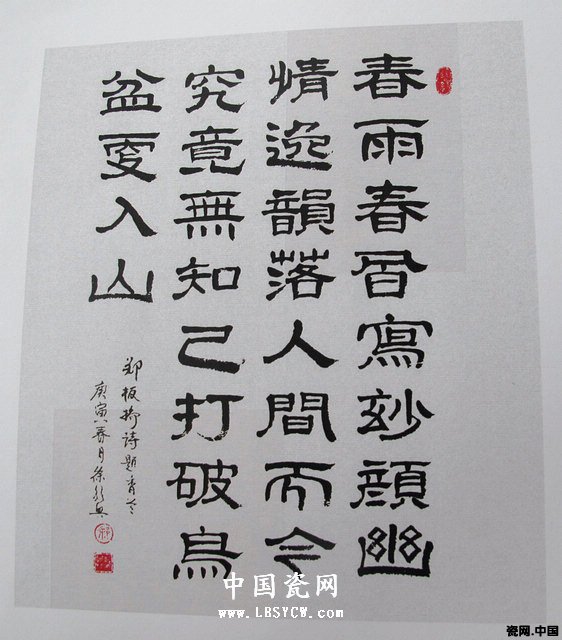 春雨春風寫妙顏幽
情逸韻落人間而今
究竟無知己打破烏
盆更入山
鄭板橋詩題
庚寅春月徐
中国瓷网
www.LBSYCW.com
瓷网.中国